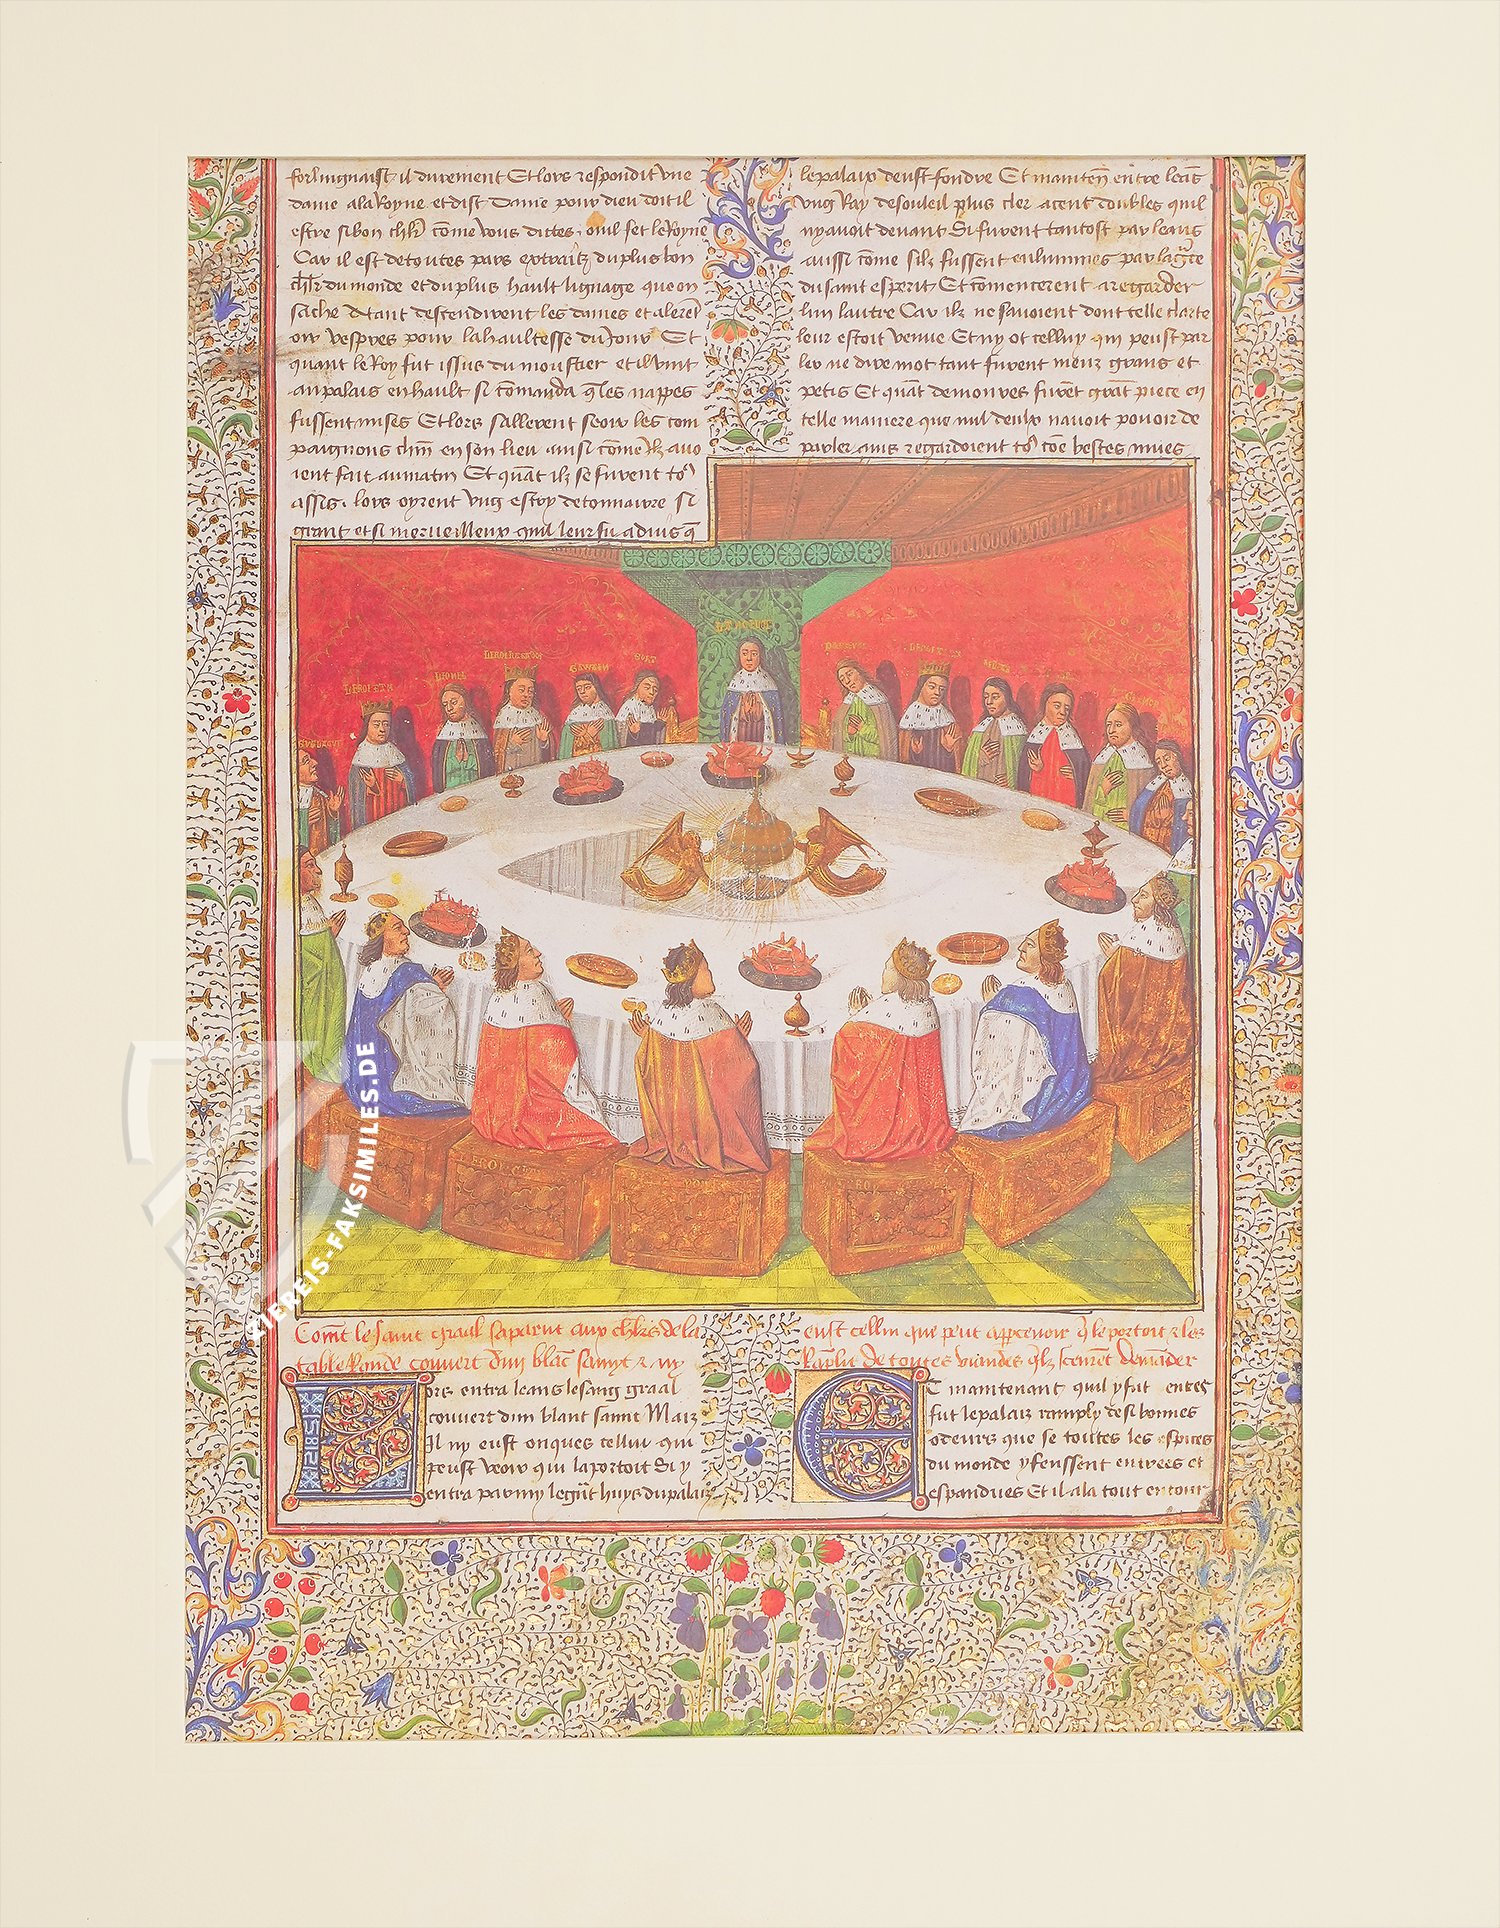 forlingnaist il durement Et lors respondit une
dame a la Royne et dist Dame pour dieu doit il
estre si bon chlr cōme vous dictes, ouil fet le Royne
Car il est de toutes pars extraitz du plus bon
chlr du monde et du plus hault lignage que on
sache A tant descendirent les dames et alerēt
oir vespres pour la haultesse du Jour Et
quant le Roy fut issus du moustier et il vint
au palais en hault si cōmanda q̄ les nappes
fussent mises Et lors sallerent seoir les com
paignons chūn en son lieu ausi cōme ilz auo
ient fait au matin Et quāt ilz se furent to9
assis, lors oyrent vng estroy de tonnairre si
grant et si merueilleux quil leur fu aduis q̄
le palaix deust fondre Et mainten̄ entre leās
vng Ray de souleil plus cler a cent doubles quil
ny auoit deuant Si furent tantost par leans
aussi cōme silz fussent enlumines par la grce
du saint esperit Et cōmencerent a regarder
lun lautre Car ilz ne sauoient dont telle clarte
leur estoit venue Et ny ot celluy qui peust par
ler ne dire mot tant furent meuz grans et
petis Et quāt demoures furēt grāt piece en
telle maniere que nul deulx nauoit pouoir de
parler ains regardoient to9 cōe bestes mues
Comēt le saint graal saparut aux chlrs de la
table Ronde couuert dun blāc samyt & ny
eust cellui que peut appceuoir q̄ le portoit & les
Ramplit de toutes viandes q̄lz sceurēt demāder
Lors entra leans le sang graal
couuert dun blant samit Maiz
Il ny eust onques cellui qui
peust veoir qui la portoit Si y
entra par my le gnt huys du palaiz
Et maintenant quil y fut entres
fut le palaiz ramply de si bonnes
odeurs que se toutes les espices
du monde y feussent entrees et
espandues Et il ala tout entour
ZIEREIS-FAKSIMILES.DE